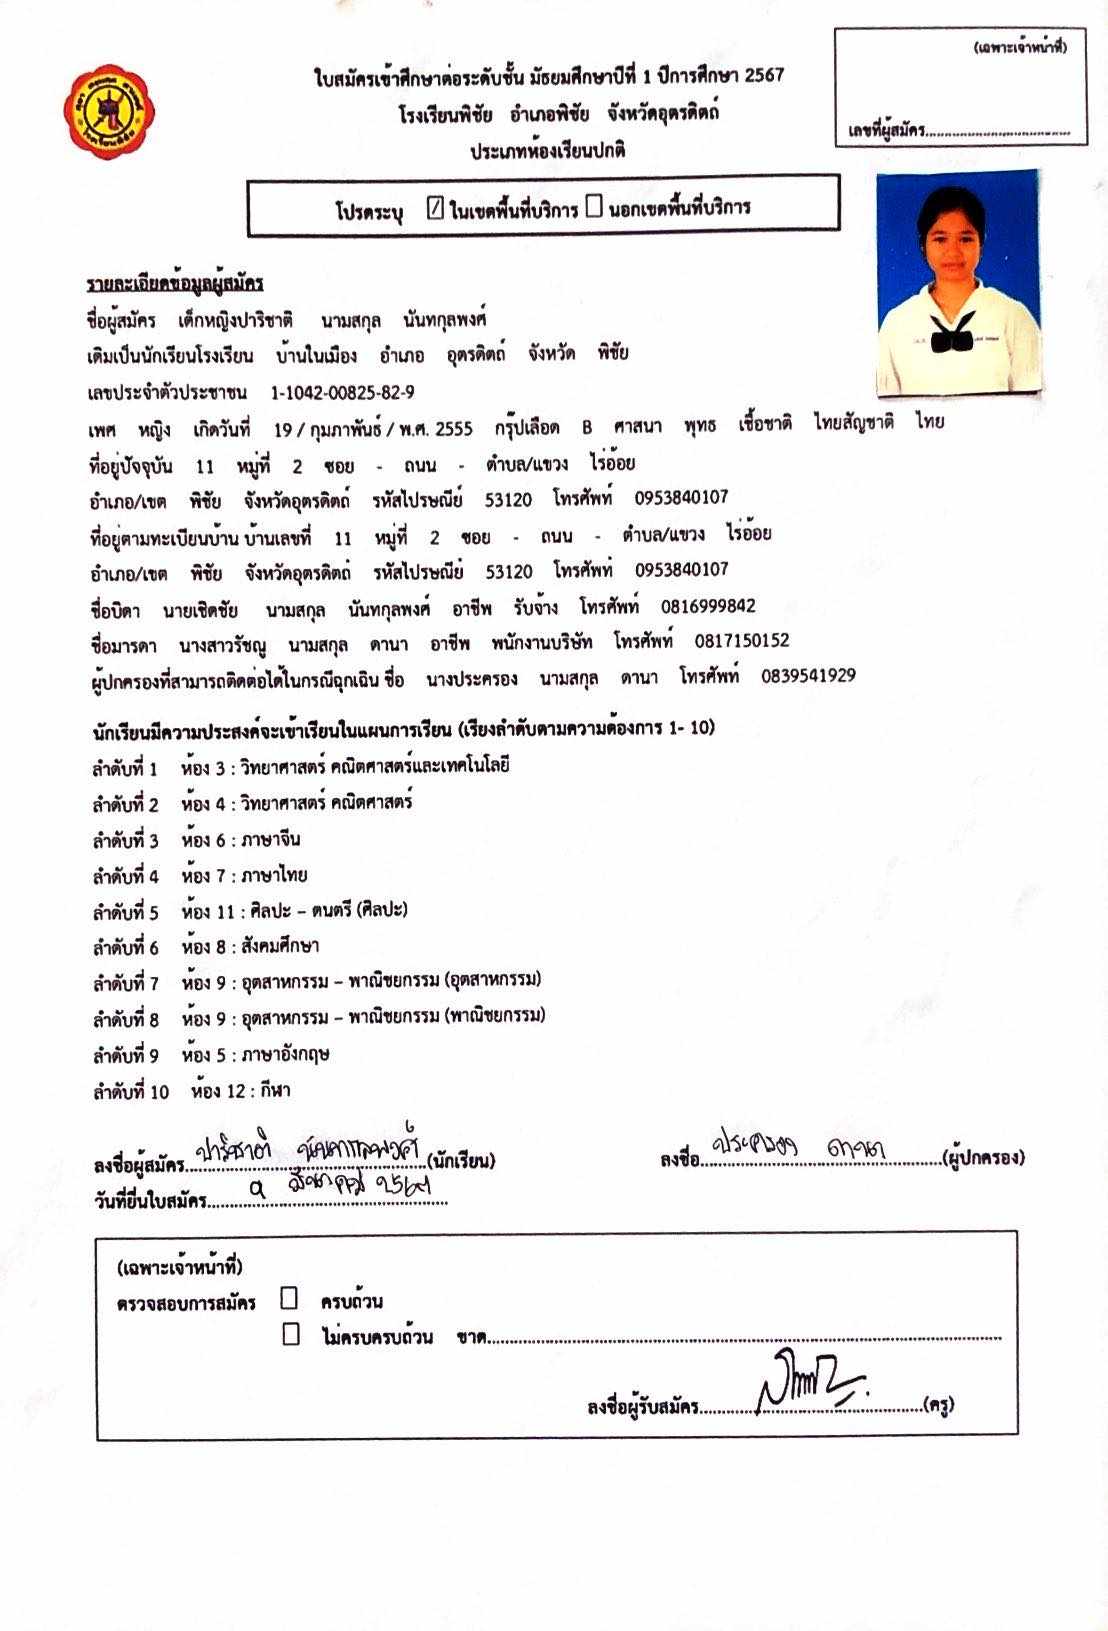 (เฉพาะเจ้าหน้าที่)
ใบสมัครเข้าศึกษาต่อระดับชั้น มัธยมศึกษาปีที่ 1 ปีการศึกษา 2567
โรงเรียนพิชัย อำเภอพิชัย จังหวัดอุตรดิตถ์
เลขที่ผู้สมัคร
ประเภทห้องเรียนปกติ
โปรดระบุ ในเขตพื้นที่บริการ นอกเขตพื้นที่บริการ
รายละเอียดข้อมูลผู้สมัคร
ชื่อผู้สมัคร เด็กหญิงปาริชาติ นามสกุล นันทกุลพงศ์
เดิมเป็นนักเรียนโรงเรียน บ้านในเมือง อำเภอ อุตรดิตถ์ จังหวัด พิชัย
เลขประจำตัวประชาชน 1-1042-00825-82-9
เพศ หญิง เกิดวันที่ 19 / กุมภาพันธ์ / พ.ศ. 2555 กรุ๊ปเลือด B ศาสนา พุทธ เชื้อชาติ ไทยสัญชาติ ไทย
ที่อยู่ปัจจุบัน 11 หมู่ที่ 2 ซอย - ถนน - ตำบล/แขวง ไร่อ้อย
อำเภอ/เขต พิชัย จังหวัดอุตรดิตถ์ รหัสไปรษณีย์ 53120 โทรศัพท์ 0953840107
ที่อยู่ตามทะเบียนบ้าน บ้านเลขที่ 11 หมู่ที่ 2 ซอย - ถนน - ตำบล/แขวง ไร่อ้อย
อำเภอ/เขต พิชัย จังหวัดอุตรดิตถ์ รหัสไปรษณีย์ 53120 โทรศัพท์ 0953840107
ชื่อบิดา นายเชิดชัย นามสกุล นันทกุลพงศ์ อาชีพ รับจ้าง โทรศัพท์ 0816999842
ชื่อมารดา นางสาวรัชญู นามสกุล ดานา อาชีพ พนักงานบริษัท โทรศัพท์ 0817150152
ผู้ปกครองที่สามารถติดต่อได้ในกรณีฉุกเฉิน ชื่อ นางประครอง นามสกุล ดานา โทรศัพท์ 0839541929
นักเรียนมีความประสงค์จะเข้าเรียนในแผนการเรียน (เรียงลำดับตามความต้องการ 1- 10)
ลำดับที่ 1 ห้อง 3 : วิทยาศาสตร์ คณิตศาสตร์และเทคโนโลยี
ลำดับที่ 2 ห้อง 4 : วิทยาศาสตร์ คณิตศาสตร์
ลำดับที่ 3 ห้อง 6 : ภาษาจีน
ลำดับที่ 4 ห้อง 7 : ภาษาไทย
ลำดับที่ 5 ห้อง 11 : ศิลปะ – ดนตรี (ศิลปะ)
ลำดับที่ 6 ห้อง 8 : สังคมศึกษา
ลำดับที่ 7 ห้อง 9 : อุตสาหกรรม – พาณิชยกรรม (อุตสาหกรรม)
ลำดับที่ 8 ห้อง 9 : อุตสาหกรรม – พาณิชยกรรม (พาณิชยกรรม)
ลำดับที่ 9 ห้อง 5 : ภาษาอังกฤษ
ลำดับที่ 10 ห้อง 12 : กีฬา
ลงชื่อผู้สมัคร ปาริชาติ นันทกุลพงศ์ (นักเรียน) ลงชื่อ ประครอง ดานา (ผู้ปกครอง)
วันที่ยื่นใบสมัคร ๑ มีนาคม ๒๕๖๗
(เฉพาะเจ้าหน้าที่)
ตรวจสอบการสมัคร ครบถ้วน
ไม่ครบครบถ้วน ขาด
ลงชื่อผู้รับสมัคร (ครู)